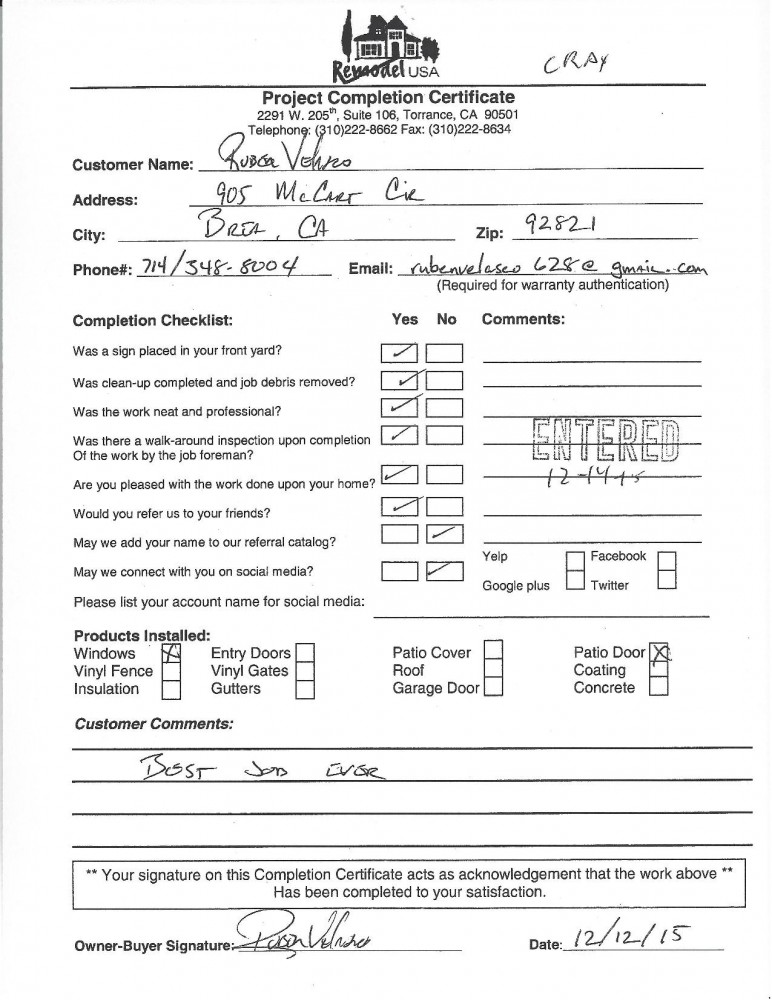 Remodel USA
CRAY
Project Completion Certificate
2291 W. 205th, Suite 106, Torrance, CA 90501
Telephone: (310)222-8662 Fax: (310)222-8634
Customer Name: Ruben Velasco
Address: 905 McCart Cir
City: Brea, CA Zip: 92821
Phone#: 714/348-8004 Email: rubenvelasco628@gmail.com
(Required for warranty authentication)
Completion Checklist: Yes No Comments:
Was a sign placed in your front yard?
Was clean-up completed and job debris removed?
Was the work neat and professional?
Was there a walk-around inspection upon completion
Of the work by the job foreman?
ENTERED
12-14-15
Are you pleased with the work done upon your home?
Would you refer us to your friends?
May we add your name to our referral catalog?
Yelp Facebook
May we connect with you on social media?
Google plus Twitter
Please list your account name for social media:
Products Installed:
Windows X Entry Doors Patio Cover Patio Door X
Vinyl Fence Vinyl Gates Roof Coating
Insulation Gutters Garage Door Concrete
Customer Comments:
BEST JOB EVER
** Your signature on this Completion Certificate acts as acknowledgement that the work above **
Has been completed to your satisfaction.
Owner-Buyer Signature: Ruben Velasco Date: 12/12/15